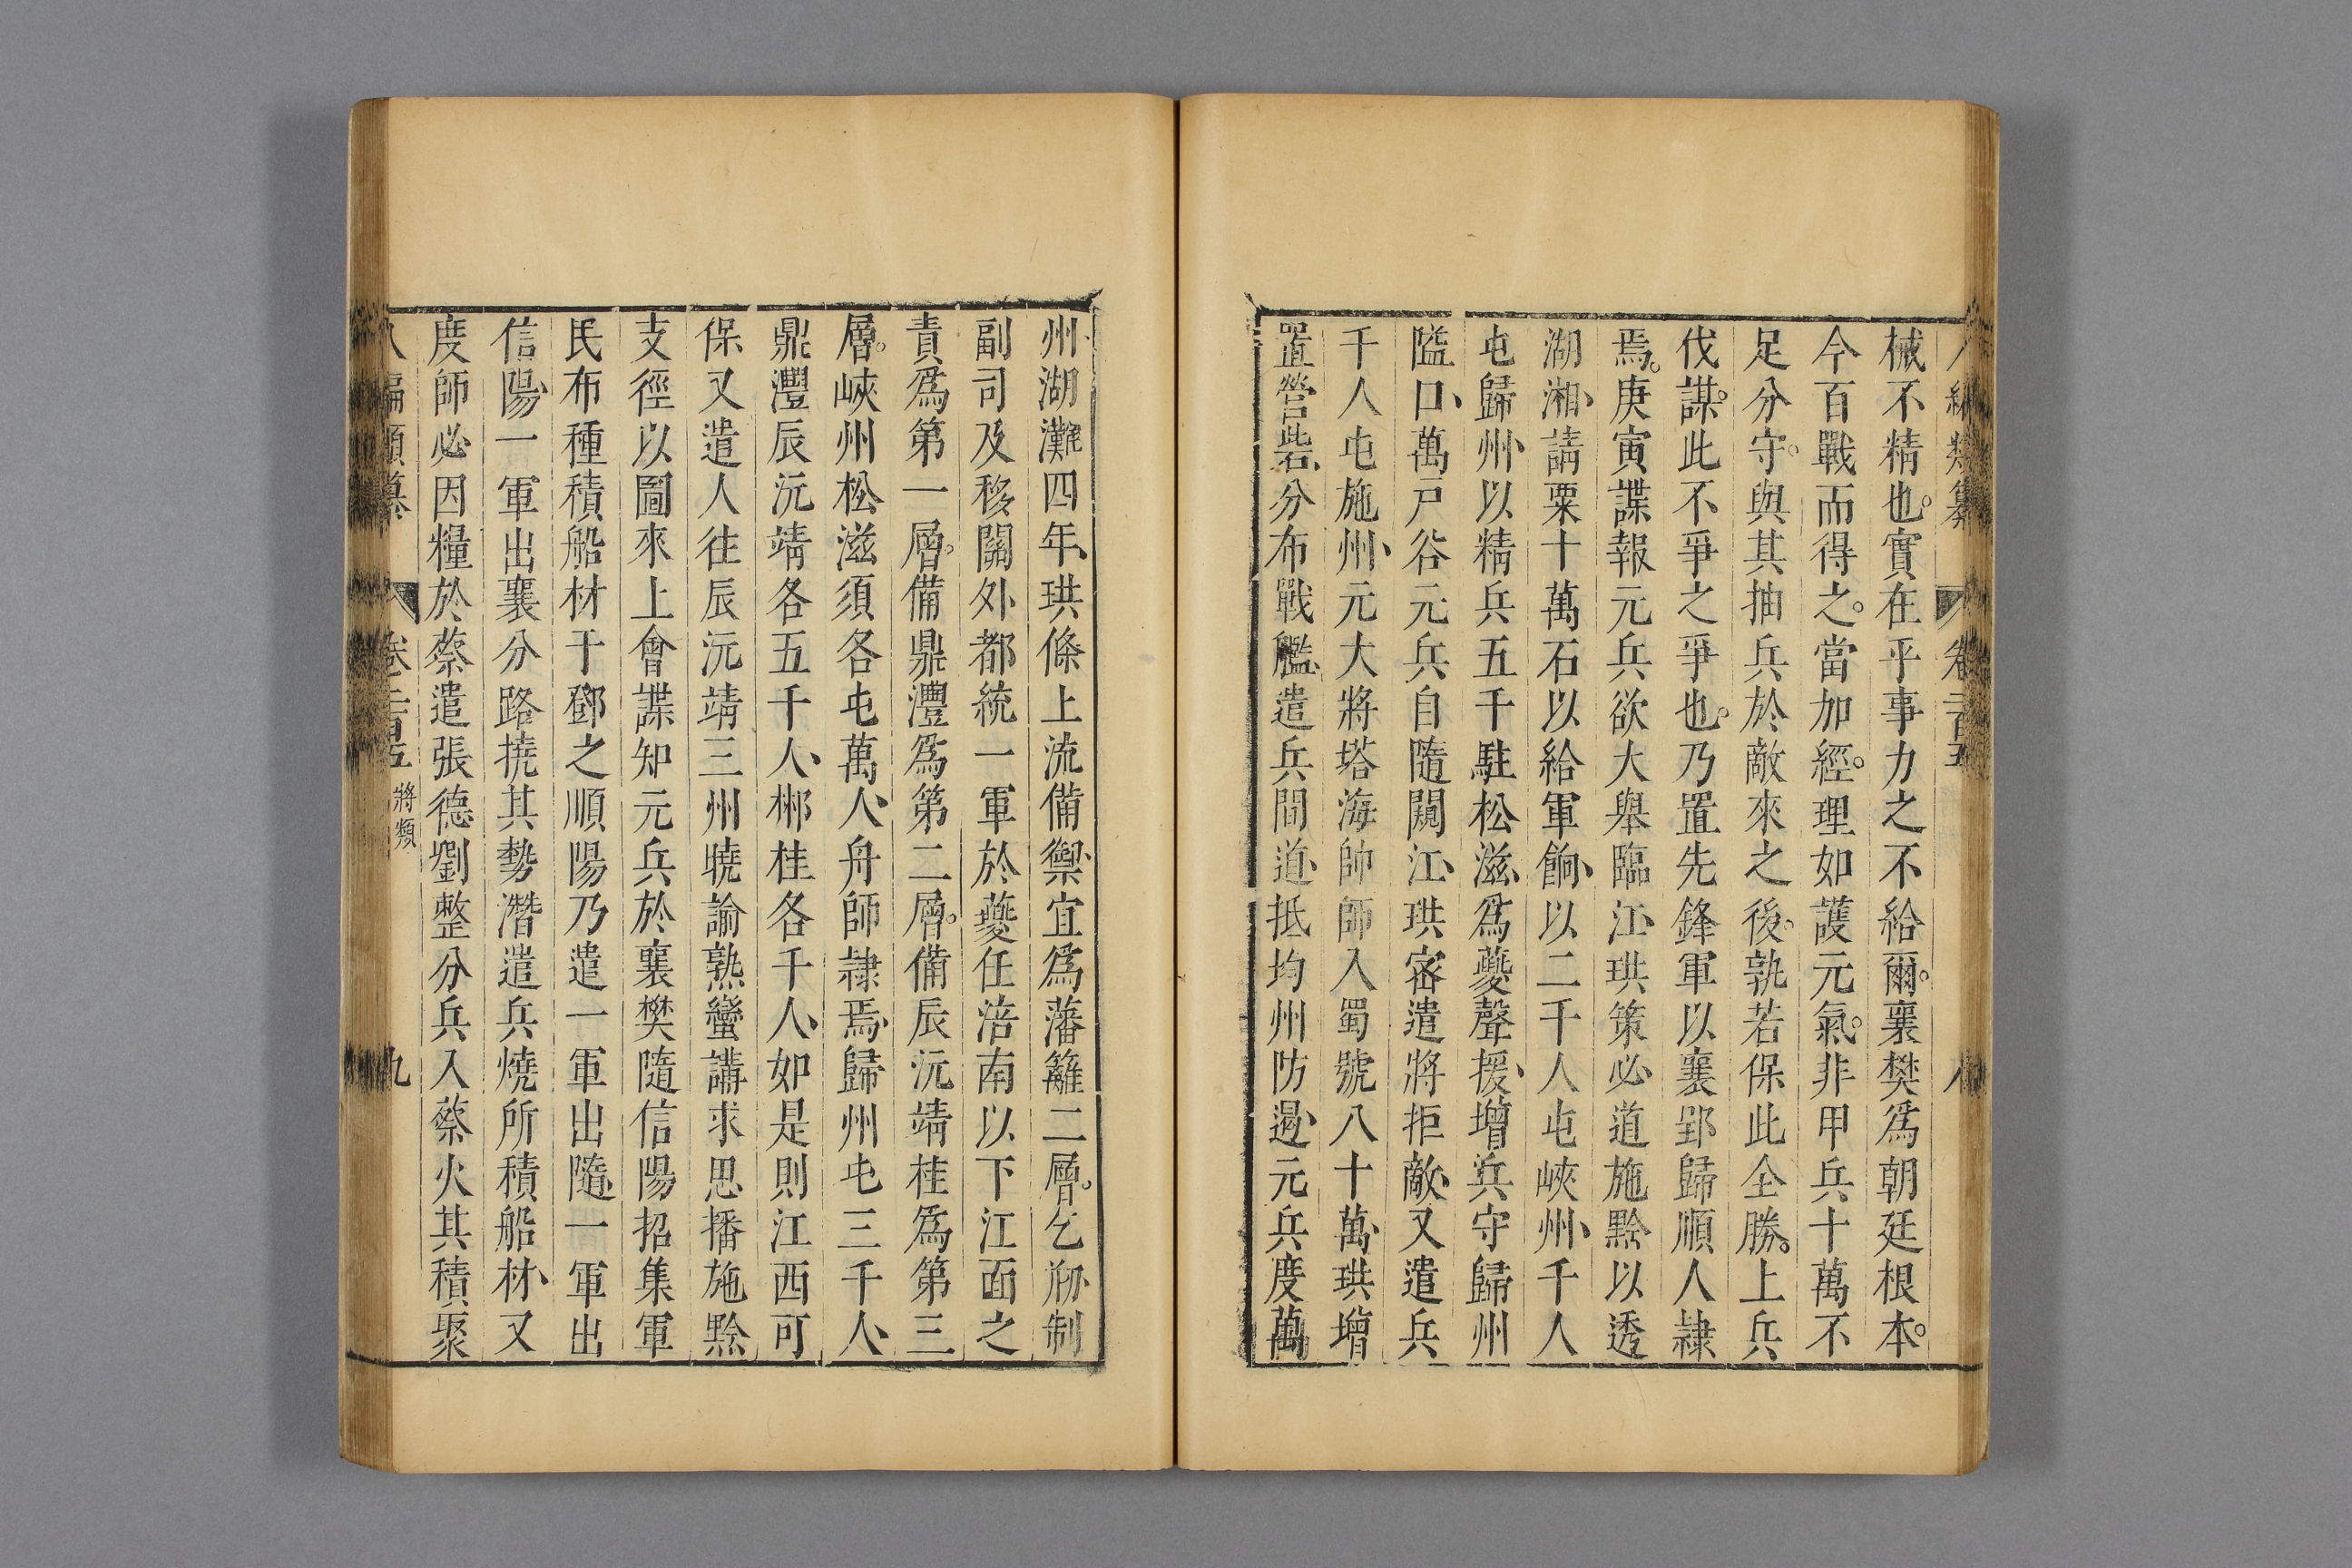 八編類纂 卷二百五 八
械不精也。實在乎事力之不給爾。襄樊爲朝廷根本。
今百戰而得之。當加經。理如護元氣。非甲兵十萬不
足分守。與其抽兵於敵來之後。孰若保此全勝。上兵
伐謀。此不爭之爭也。乃置先鋒軍以襄郢歸順人隷
焉。庚寅諜報元兵欲大舉臨江、珙策必道施黔以透
湖湘、請粟十萬石以給軍餉、以二千人屯峽州、千人
屯歸州、以精兵五千駐松滋、爲夔聲援、增兵守歸州
隘口、萬戸谷元兵自隨闚江、珙密遣將拒敵、又遣兵
千人屯施州、元大將塔海帥師入蜀號八十萬、珙增
置營砦、分布戰艦、遣兵間道、抵均州防邊、元兵度萬
州湖灘四年、珙條上流備禦、宜爲藩籬二層。乞刱制
副司及移關外都統一軍於夔任涪南以下江面之
責爲第一層。備鼎灃爲第二層。備辰沅靖桂爲第三
層。峽州松滋須各屯萬人、舟師隷焉、歸州屯三千人、
鼎灃辰沅靖各五千人、郴桂各千人、如是則江西可
保又遣人往辰沅靖三州曉諭熟蠻講求思播施黔
支徑以圖來上會諜知元兵於襄樊隨信陽招集軍
民布種積船材于鄧之順陽乃遣一軍出隨、一軍出
信陽、一軍出襄分路撓其勢潛遣兵燒所積船材、又
度師必因糧於蔡遣張德劉整分兵入蔡火其積聚
八編類纂 卷二百五 將類 九